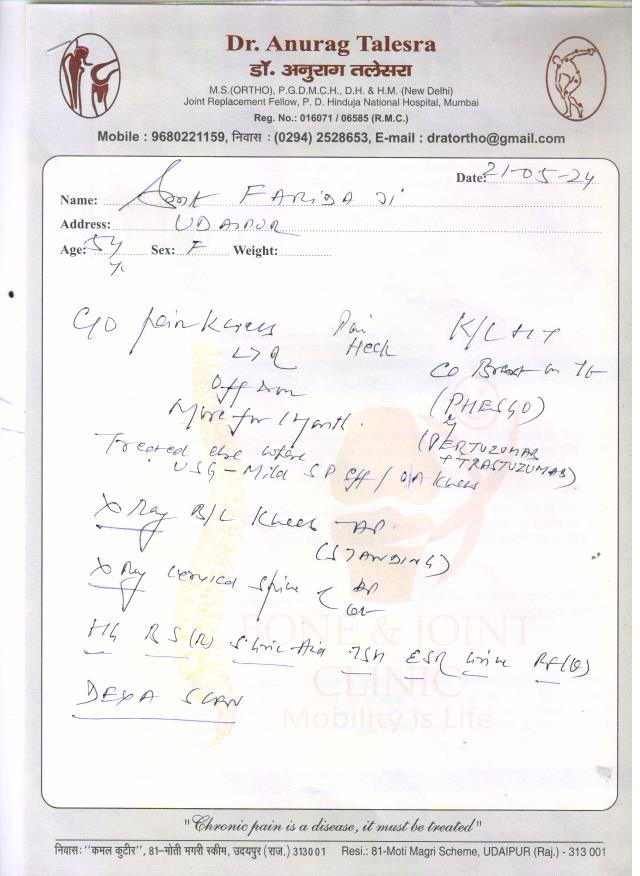 Dr. Anurag Talesra
डॉ. अनुराग तलेसरा
M.S.(ORTHO), P.G.D.M.C.H., D.H. & H.M. (New Delhi)
Joint Replacement Fellow, P. D. Hinduja National Hospital, Mumbai
Reg. No.: 016071 / 06585 (R.M.C.)
Mobile : 9680221159, निवास : (0294) 2528653, E-mail : dratortho@gmail.com
Date: 21-05-24
Name: Smt FARIDA JI
Address: UDAIPUR
Age: 54 Sex: F Weight:
C/O pain Knees Pain Neck K/C HT
L>R
Off & on
More for 1 Month.
(PHESGO)
(PERTUZUMAB
+ TRASTUZUMAB)
Treated else where
USG - Mild SP eff / OA Knees
X Ray B/L Knees - AP
(STANDING)
X Ray Cervical Spine AP
Hb BS(R) S Uric Acid TSH ESR Urine
DEXA SCAN
BONE & JOINT
CLINIC
Mobility is Life
"Chronic pain is a disease, it must be treated"
निवास: "कमल कुटीर", 81-मोती मगरी स्कीम, उदयपुर (राज.) 313001 Resi.: 81-Moti Magri Scheme, UDAIPUR (Raj.) - 313 001